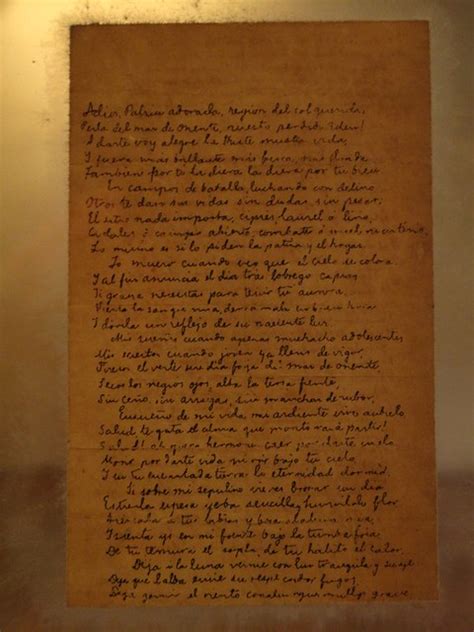 Adios, Patria adorada, region del sol querida,
Perla del mar de oriente, nuestro perdido Eden!
A darte voy alegre la triste mustia vida,
Y fuera más brillante más fresca, más florida
Tambien por tí la diera la diera por tu bien
En campos de batalla, luchando con delirio
Otros te dan sus vidas sin dudas, sin pesar;
El sitio nada importa, cipres, laurel ó lirio,
Cadalso ó campo abierto, combate ó cruel martirio,
Lo mismo es si lo piden la patria y el hogar.
Yo muero cuando veo que el cielo se colora
Y al fin anuncia el dia tras lobrego capuz
Si grana necesitas para teñir tu aurora,
Vierte la sangre mia, derramala en buen hora
Y dorela un reflejo de su naciente luz
Mis sueños cuando apenas muchacho adolescente,
Mis sueños cuando joven ya lleno de vigor,
Fueron el verte un dia joya del mar de oriente
Secos los negros ojos, alta la tersa frente,
Sin ceño, sin arrugas, sin manchas de rubor,
Ensueño de mi vida, mi ardiente vivo anhelo
Salud te grita el alma que pronto va á partir!
Salud! ah que es hermoso caer por darte vuelo
Morir por darte vida morir bajo tu cielo
Y en tu encantada tierra la eternidad dormir.
Si sobre mi sepulcro vieres brotar un dia
Entre la espesa yerba sencilla, humilde flor
Acercala a tus labios y besa al alma mia,
Y sienta yo en mi frente bajo la tumba fria
De tu ternura el soplo, de tu halito el calor,
Deja a la luna verme con luz tranquila y suave
Deja que el alba envie su resplandor fugaz
Deja gemir el viento con su murmullo grave